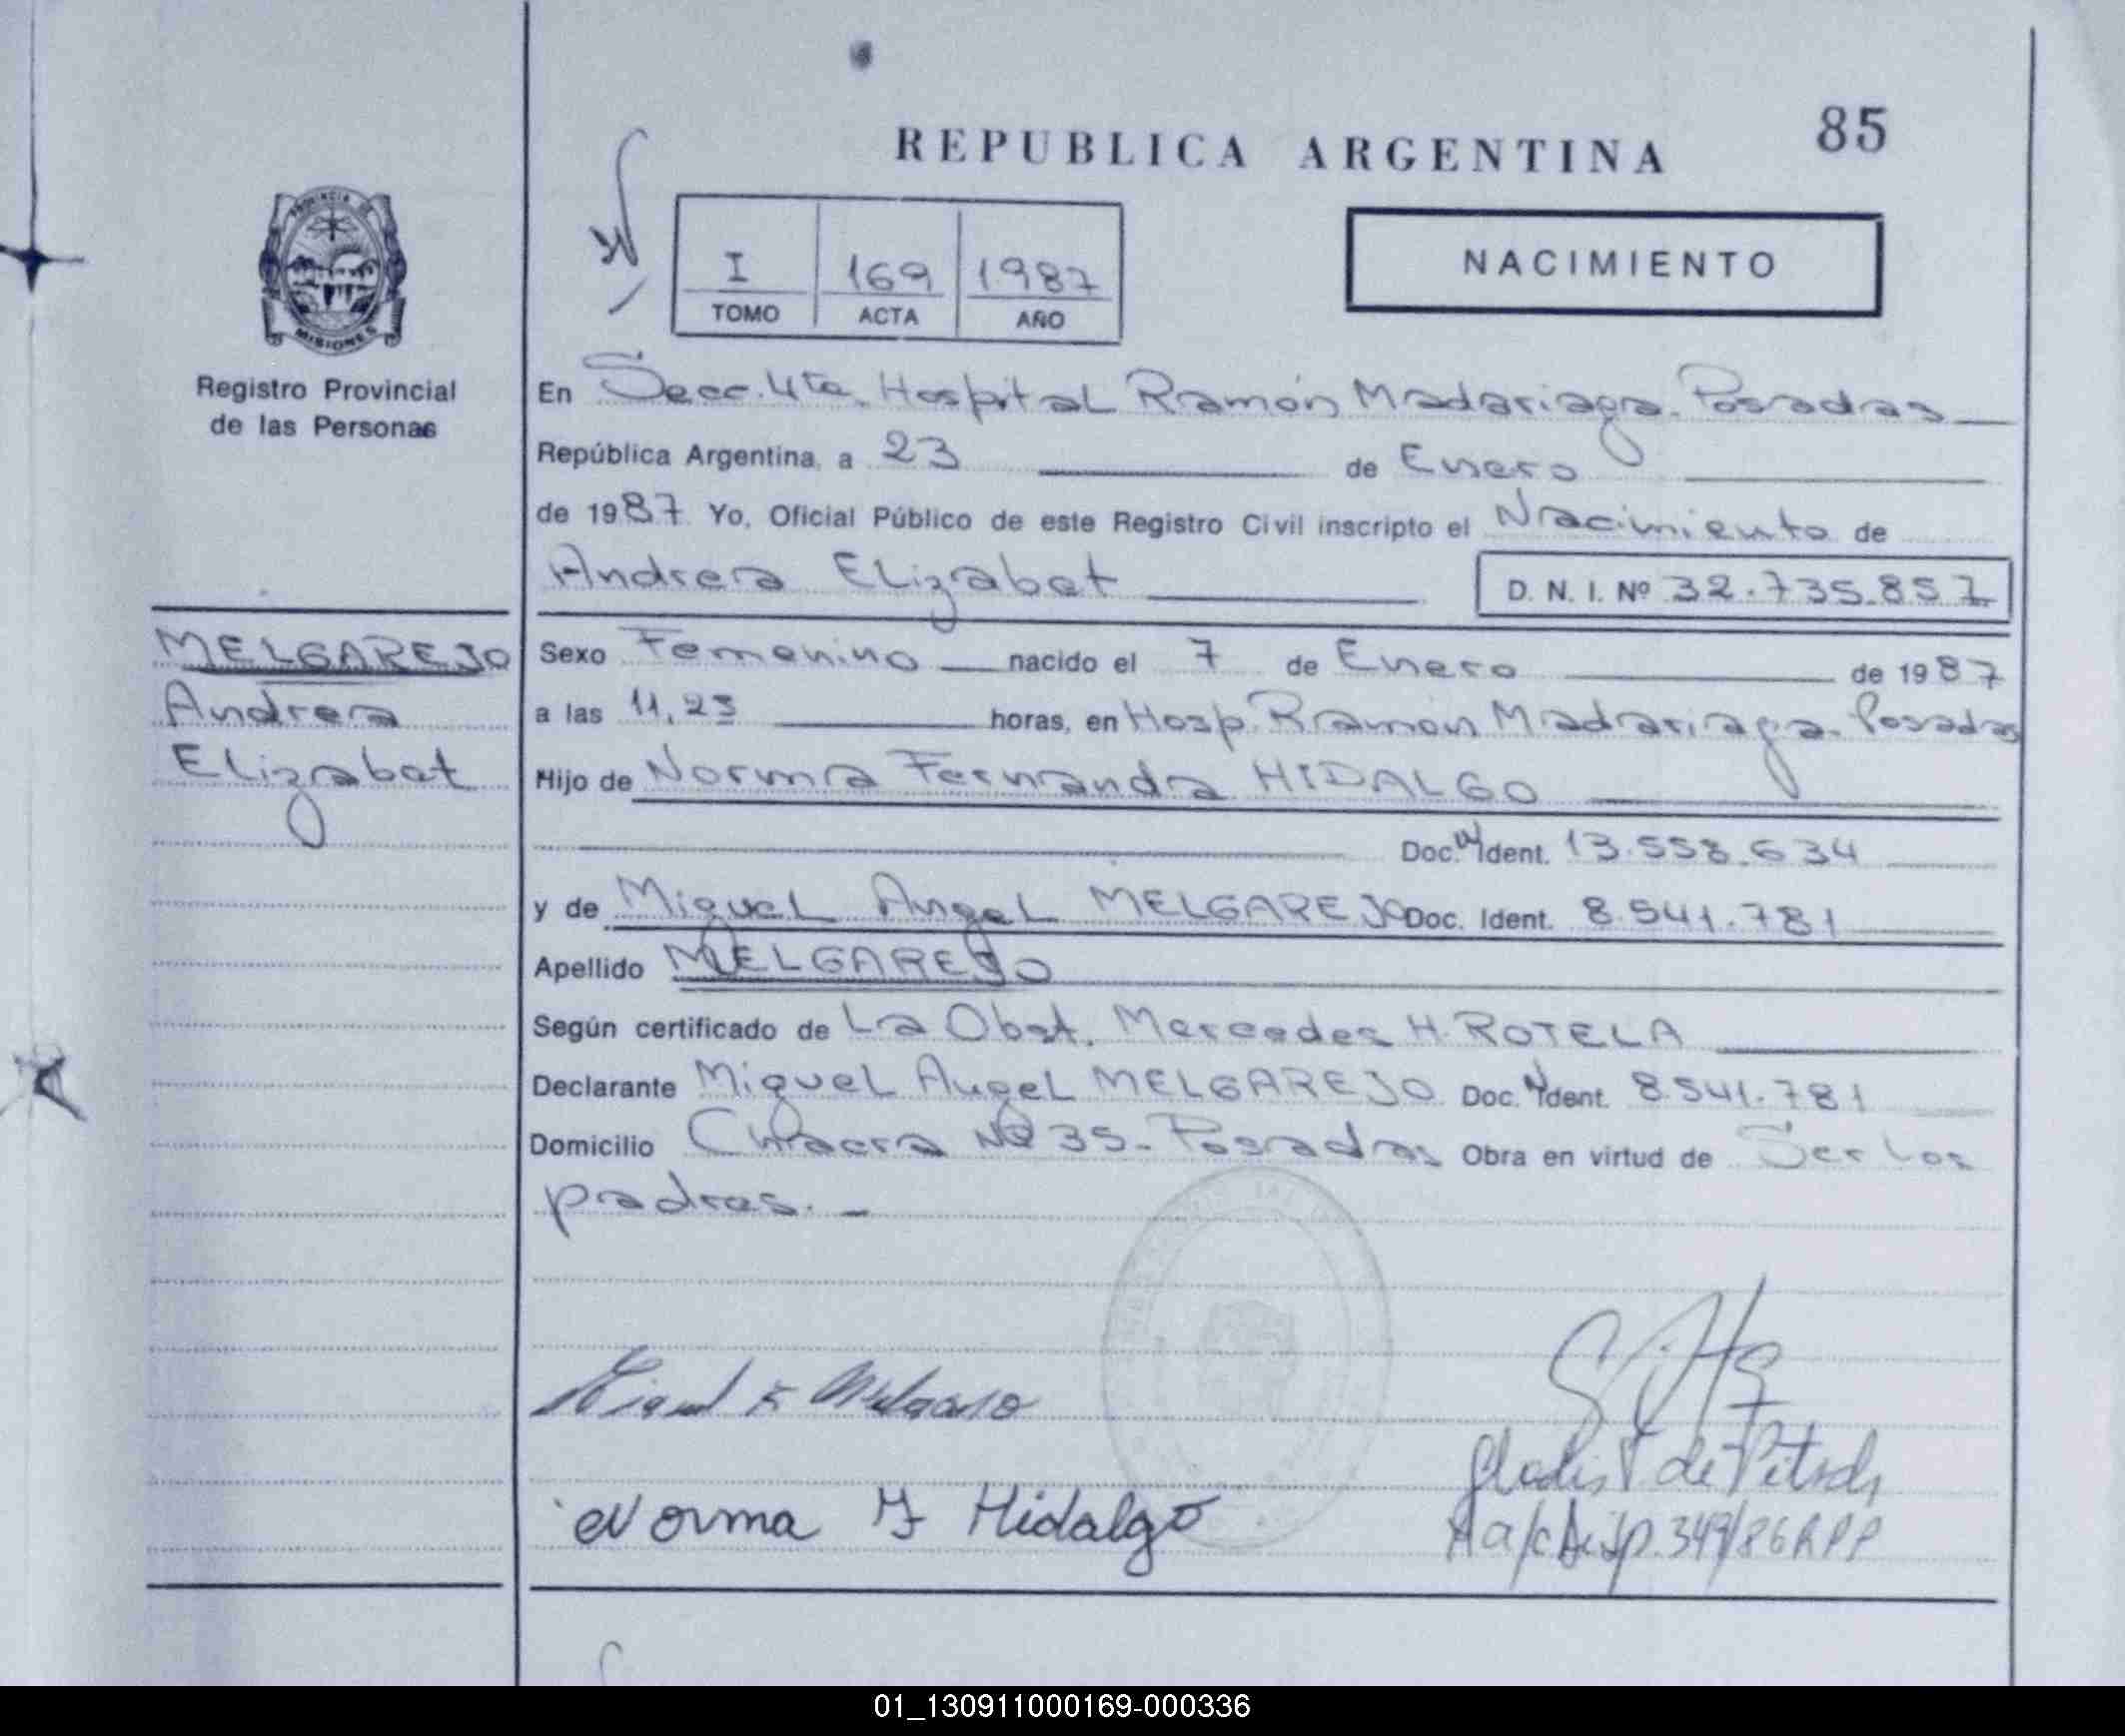 85
REPUBLICA ARGENTINA
NACIMIENTO
I 169 1987
TOMO ACTA AÑO
PROVINCIA DE
MISIONES
Registro Provincial
de las Personas
MELGAREJO
Andrea
Elizabet
En Secc. 4ta. Hospital Ramón Madariaga. Posadas
República Argentina, a 23 de Enero
de 1987 Yo, Oficial Público de este Registro Civil inscripto el Nacimiento de
Andrea Elizabet D. N. I. Nº 32.735.857
Sexo Femenino nacido el 7 de Enero de 1987
a las 11,23 horas, en Hosp. Ramón Madariaga. Posadas
Hijo de Norma Fernanda HIDALGO
Doc. Ident. 13.558.634
y de Miguel Angel MELGAREJO Doc. Ident. 8.541.781
Apellido MELGAREJO
Según certificado de La Obst. Mercedes H. ROTELA
Declarante Miguel Angel MELGAREJO Doc. Ident. 8.541.781
Domicilio Chacra Nº 35- Posadas Obra en virtud de Ser los
padres. -
Norma F Hidalgo
Gladis de
349/86 RPP
01_130911000169-000336